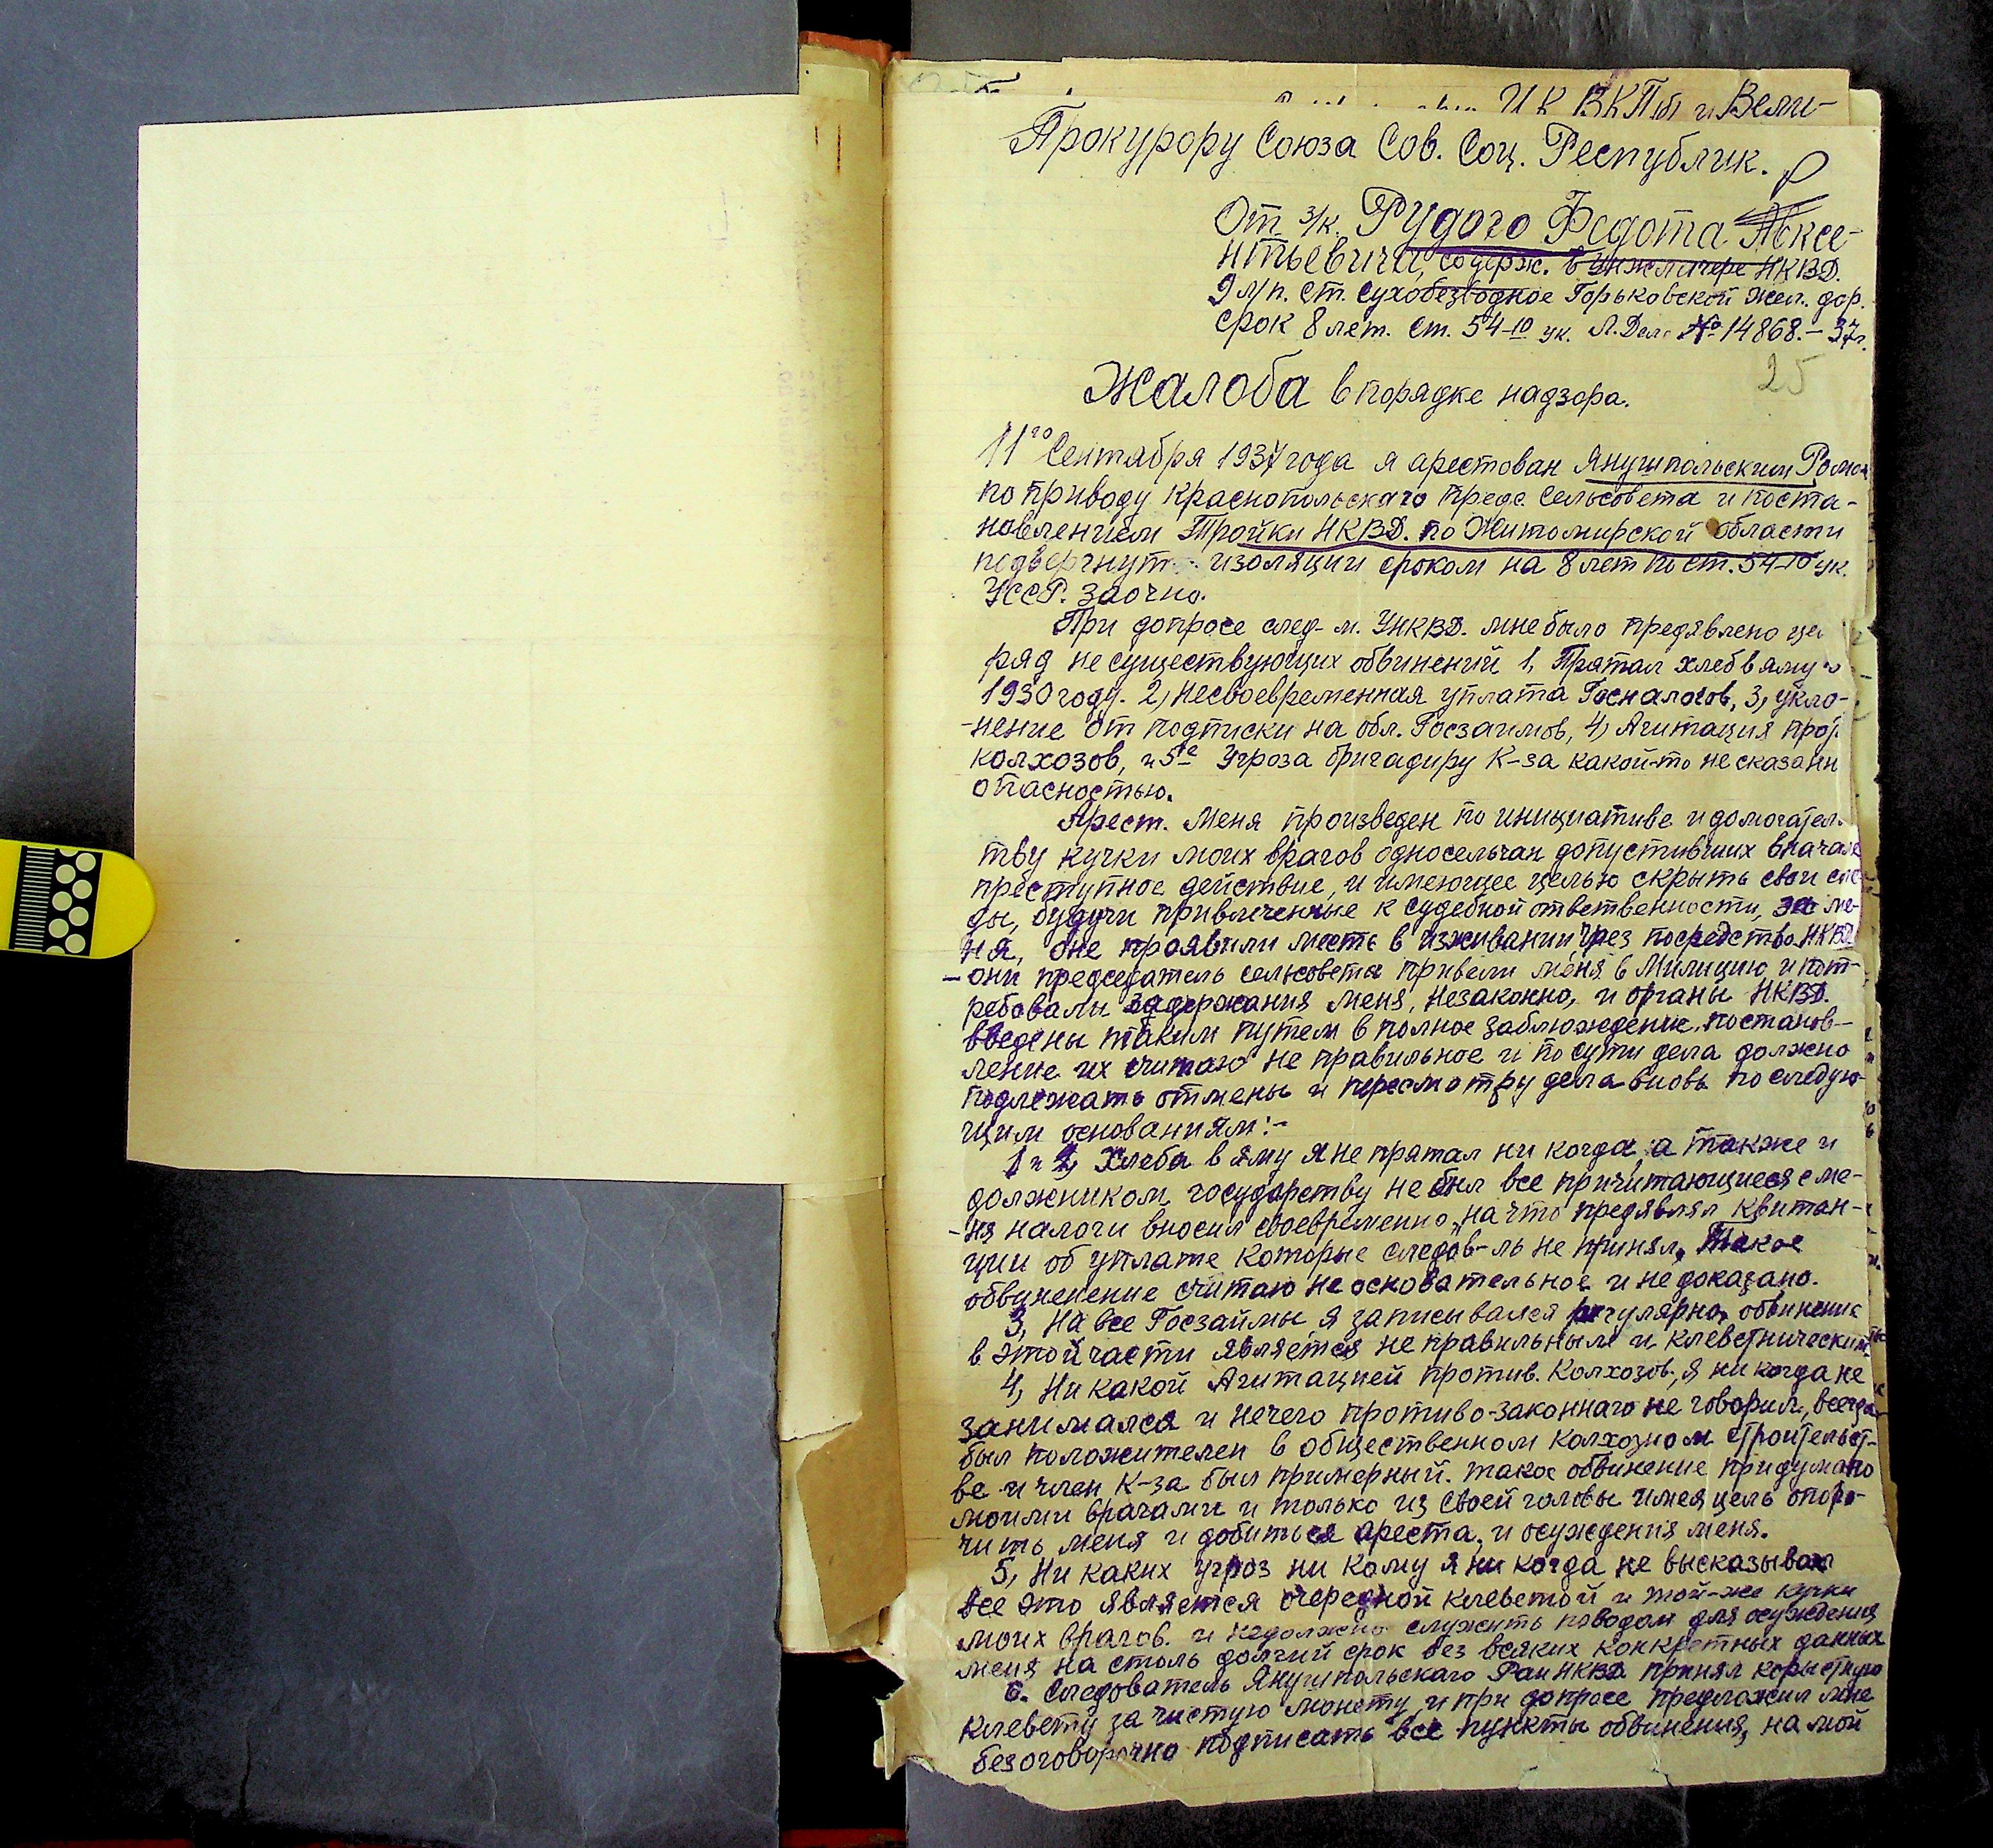 ЦК ВКП(б) и Вели-
Прокурору Союза Сов. Соц. Республик.
От з/к. Рудого Федота Авксе-
нтьевича, содерж. в Унжлагере НКВД.
9 л/п. ст. Сухобезводное Горьковской жел. дор.
срок 8 лет. ст. 54-10 ук. Л. Дело № 14868.-37г.
25
Жалоба в порядке надзора.
11го Сентября 1937 года я арестован Янушпольским Ромом
по приводу Краснопольскаго предс. Сельсовета и поста-
новлением Тройки НКВД. по Житомирской области
подвергнут изоляции сроком на 8 лет по ст. 54-10 ук.
УССР. заочно.
При допросе след-м. УНКВД. мне было предявлено це
ряд не существующих обвинений 1, Прятал хлеб в яму в
1930 году. 2, несвоевременная уплата Госналогов, 3, укло-
-нение от подписки на обл. Госзаимов, 4, Агитация прот
колхозов, и 5е Угроза бригадиру К-за какой-то не сказанн
опасностью.
Арест. Меня произведен по инициативе и домогател
тву кучки моих врагов односельчан допустивших вначале
преступное действие, и имеющее целью скрыть свои сле
ды, будучи привлеченные к судебной ответственности, за ме-
ня, оне проявили месть в изживании чрез посредство НКВД
-они председатель сельсовета привели меня в Милицию и пот-
ребовали задержания меня, незаконно, и органы НКВД.
введены таким путем в полное заблюждение, постанов-
ление их считаю не правильное и по сути дела должно
подлежать отмены и пересмотру дела вновь по следую-
щим основаниям:-
1 и 2, Хлеба в яму я не прятал ни когда, а также и
должником государству не был все причитающиеся с ме-
-ня налоги вносил своевременно, на что предявлял квитан-
ции об уплате которые следов-ль не принял. Такое
обвиненение считаю не основательное и не доказано.
3, На все Госзаймы я записывался регулярно, обвинение
в этой части является не правильным и клеветническим.
4, Ни какой Агитацией против. Колхозов, я ни когда не
занимался и нечего противо-законнаго не говорил, всегда
был положителен в общественном колхозном строительст-
ве и член К-за был примерный. такое обвинение придумано
моими врагами и только из своей головы имея цель опоро-
чить меня и добиться ареста, и осуждения меня.
5, Ни каких угроз ни кому я ни когда не высказывал
все это является очередной клеветой и той-же кучки
моих врагов. и недолжно служить поводом для осуждения
меня на столь долгий срок без всяких конкретных данных
6. Следователь Янушпольскаго РайНКВД принял корыстную
клевету за чистую монету, и при допросе предложил мне
безоговорочно подписать все пункты обвинения, на мой